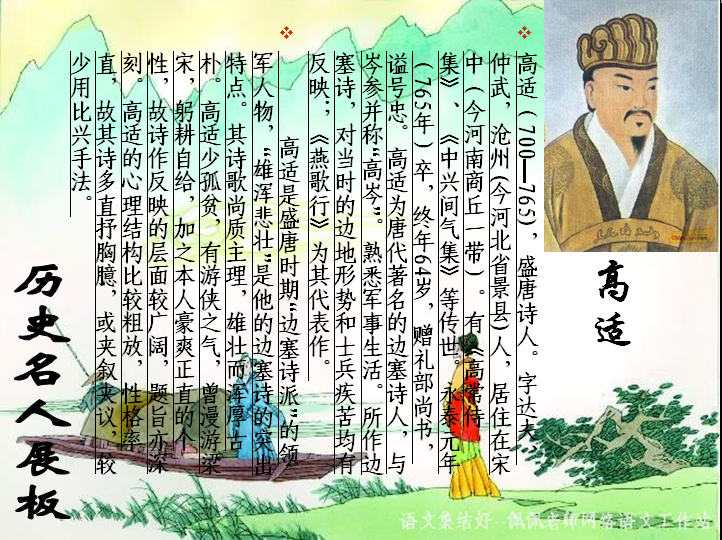 高适
高适（700—765），盛唐诗人。字达夫、
仲武，沧州(今河北省景县)人，居住在宋
中（今河南商丘一带）。有《高常侍
集》、《中兴间气集》等传世。永泰元年
（765年）卒，终年64岁，赠礼部尚书，
谥号忠。高适为唐代著名的边塞诗人，与
岑参并称“高岑”。熟悉军事生活。所作边
塞诗，对当时的边地形势和士兵疾苦均有
反映；《燕歌行》为其代表作。
高适是盛唐时期“边塞诗派”的领
军人物，“雄浑悲壮”是他的边塞诗的突出
特点。其诗歌尚质主理，雄壮而浑厚古
朴。高适少孤贫，有游侠之气，曾漫游梁
宋，躬耕自给，加之本人豪爽正直的个
性，故诗作反映的层面较广阔，题旨亦深
刻。高适的心理结构比较粗放，性格率
直，故其诗多直抒胸臆，或夹叙夹议，较
少用比兴手法。
历史名人展板
语文集结好--佩佩老师网络语文工作站